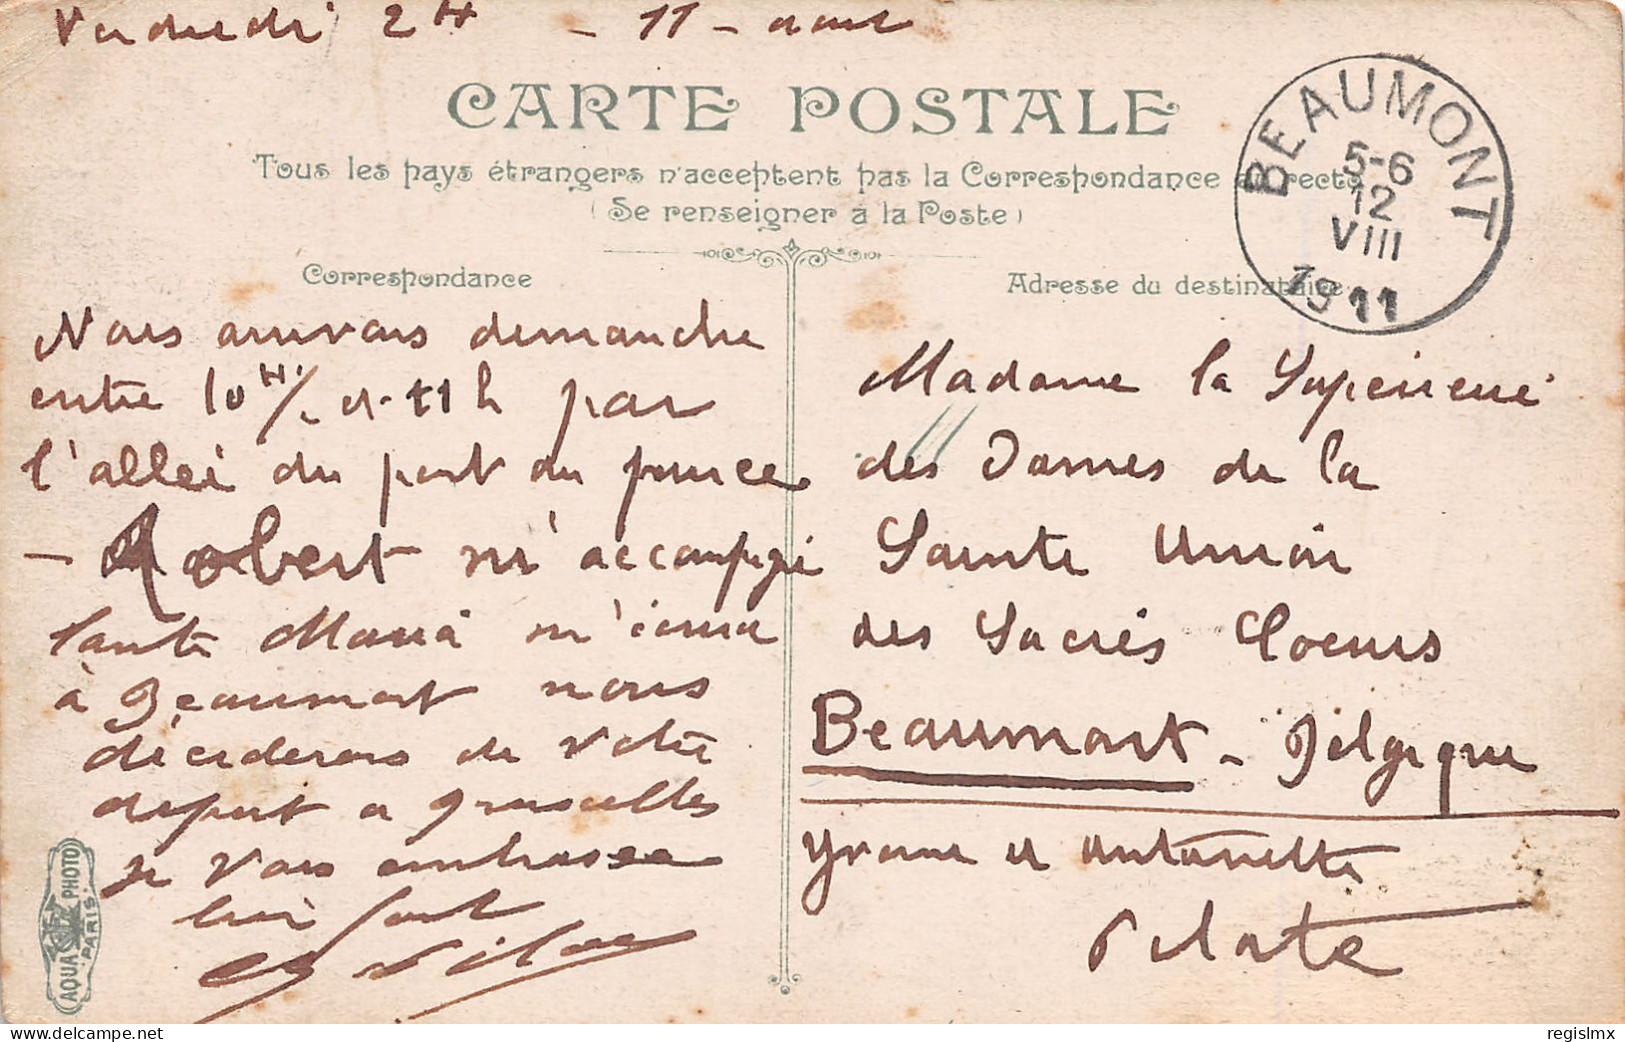 Vendredi 2 H - 11 - aout
CARTE POSTALE
Tous les pays étrangers n'acceptent pas la Correspondance au recto
(Se renseigner à la Poste)
BEAUMONT
5-6
12
VIII
1911
Correspondance
Nous arrivons dimanche
entre 10 H 1/2 et 11 h par
l'allée du port du prince
- Robert m'accompagne
Tante Maria
à Beaumont nous
déciderons de votre
départ à Bruxelles
je vous embrasse
bien fort
Adresse du destinataire
Madame la Supérieure
des Dames de la
Sainte Union
des Sacrés Coeurs
Beaumont - Belgique
Yvonne et Antoinette
Pilate
AQUA PHOTO
PARIS
regislmx
delcampe.net